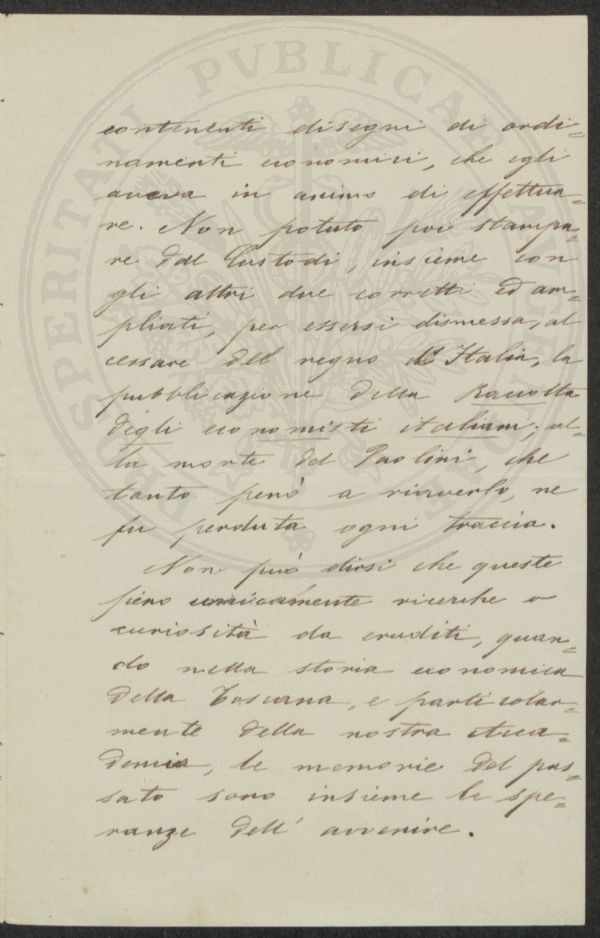 contenenti disegni di ordi=
namenti economici, che egli
aveva in animo di effettua=
re. Non potuto poi stampa=
re dal Custodi, insieme con
gli altri due corretti ed am=
pliati, per essersi dismessa, al
cessare del regno d'Italia, la
pubblicazione della Raccolta
degli economisti italiani; al=
la morte del Paolini, che
tanto penò a riaverlo, ne
fu perduta ogni traccia.
Non può dirsi che queste
sieno unicamente ricerche o
curiosità da eruditi, quan=
do nella storia economica
della Toscana, e particolar=
mente della nostra Acca=
demia, le memorie del pas=
sato sono insieme le spe=
ranze dell' avvenire.
PROSPERITATI PVBLICAE AVGENDAE